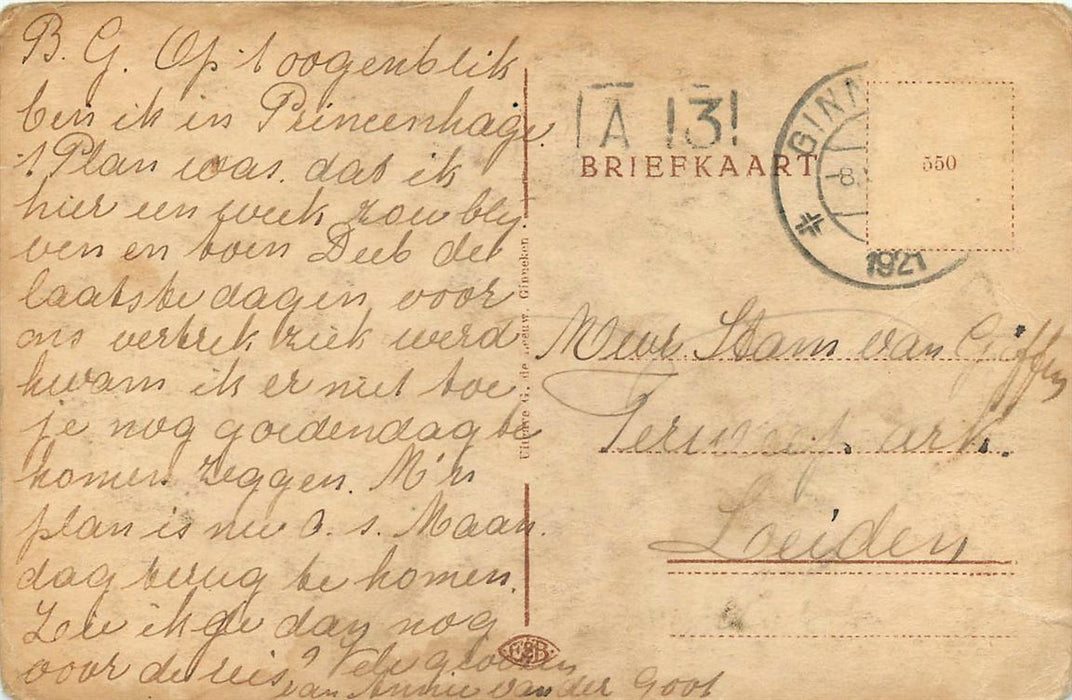 B. G. Op 't oogenblik
ben ik in Princenhage.
't Plan was dat ik
hier een week zou blij
ven en toen Deeb de
laatste dagen voor
ons vertrek ziek werd
kwam ik er niet toe
je nog goedendag te
komen zeggen. M'n
plan is nu a. s. Maan
dag terug te komen.
Zie ik je dan nog
voor de reis? Vele groeten
van Annie van der Goot
Uitgave G. de Leeuw, Ginneken
E&B
A 3
BRIEFKAART
GINN
8
1921
550
Mevr Stans van Giffen
park.
Leiden